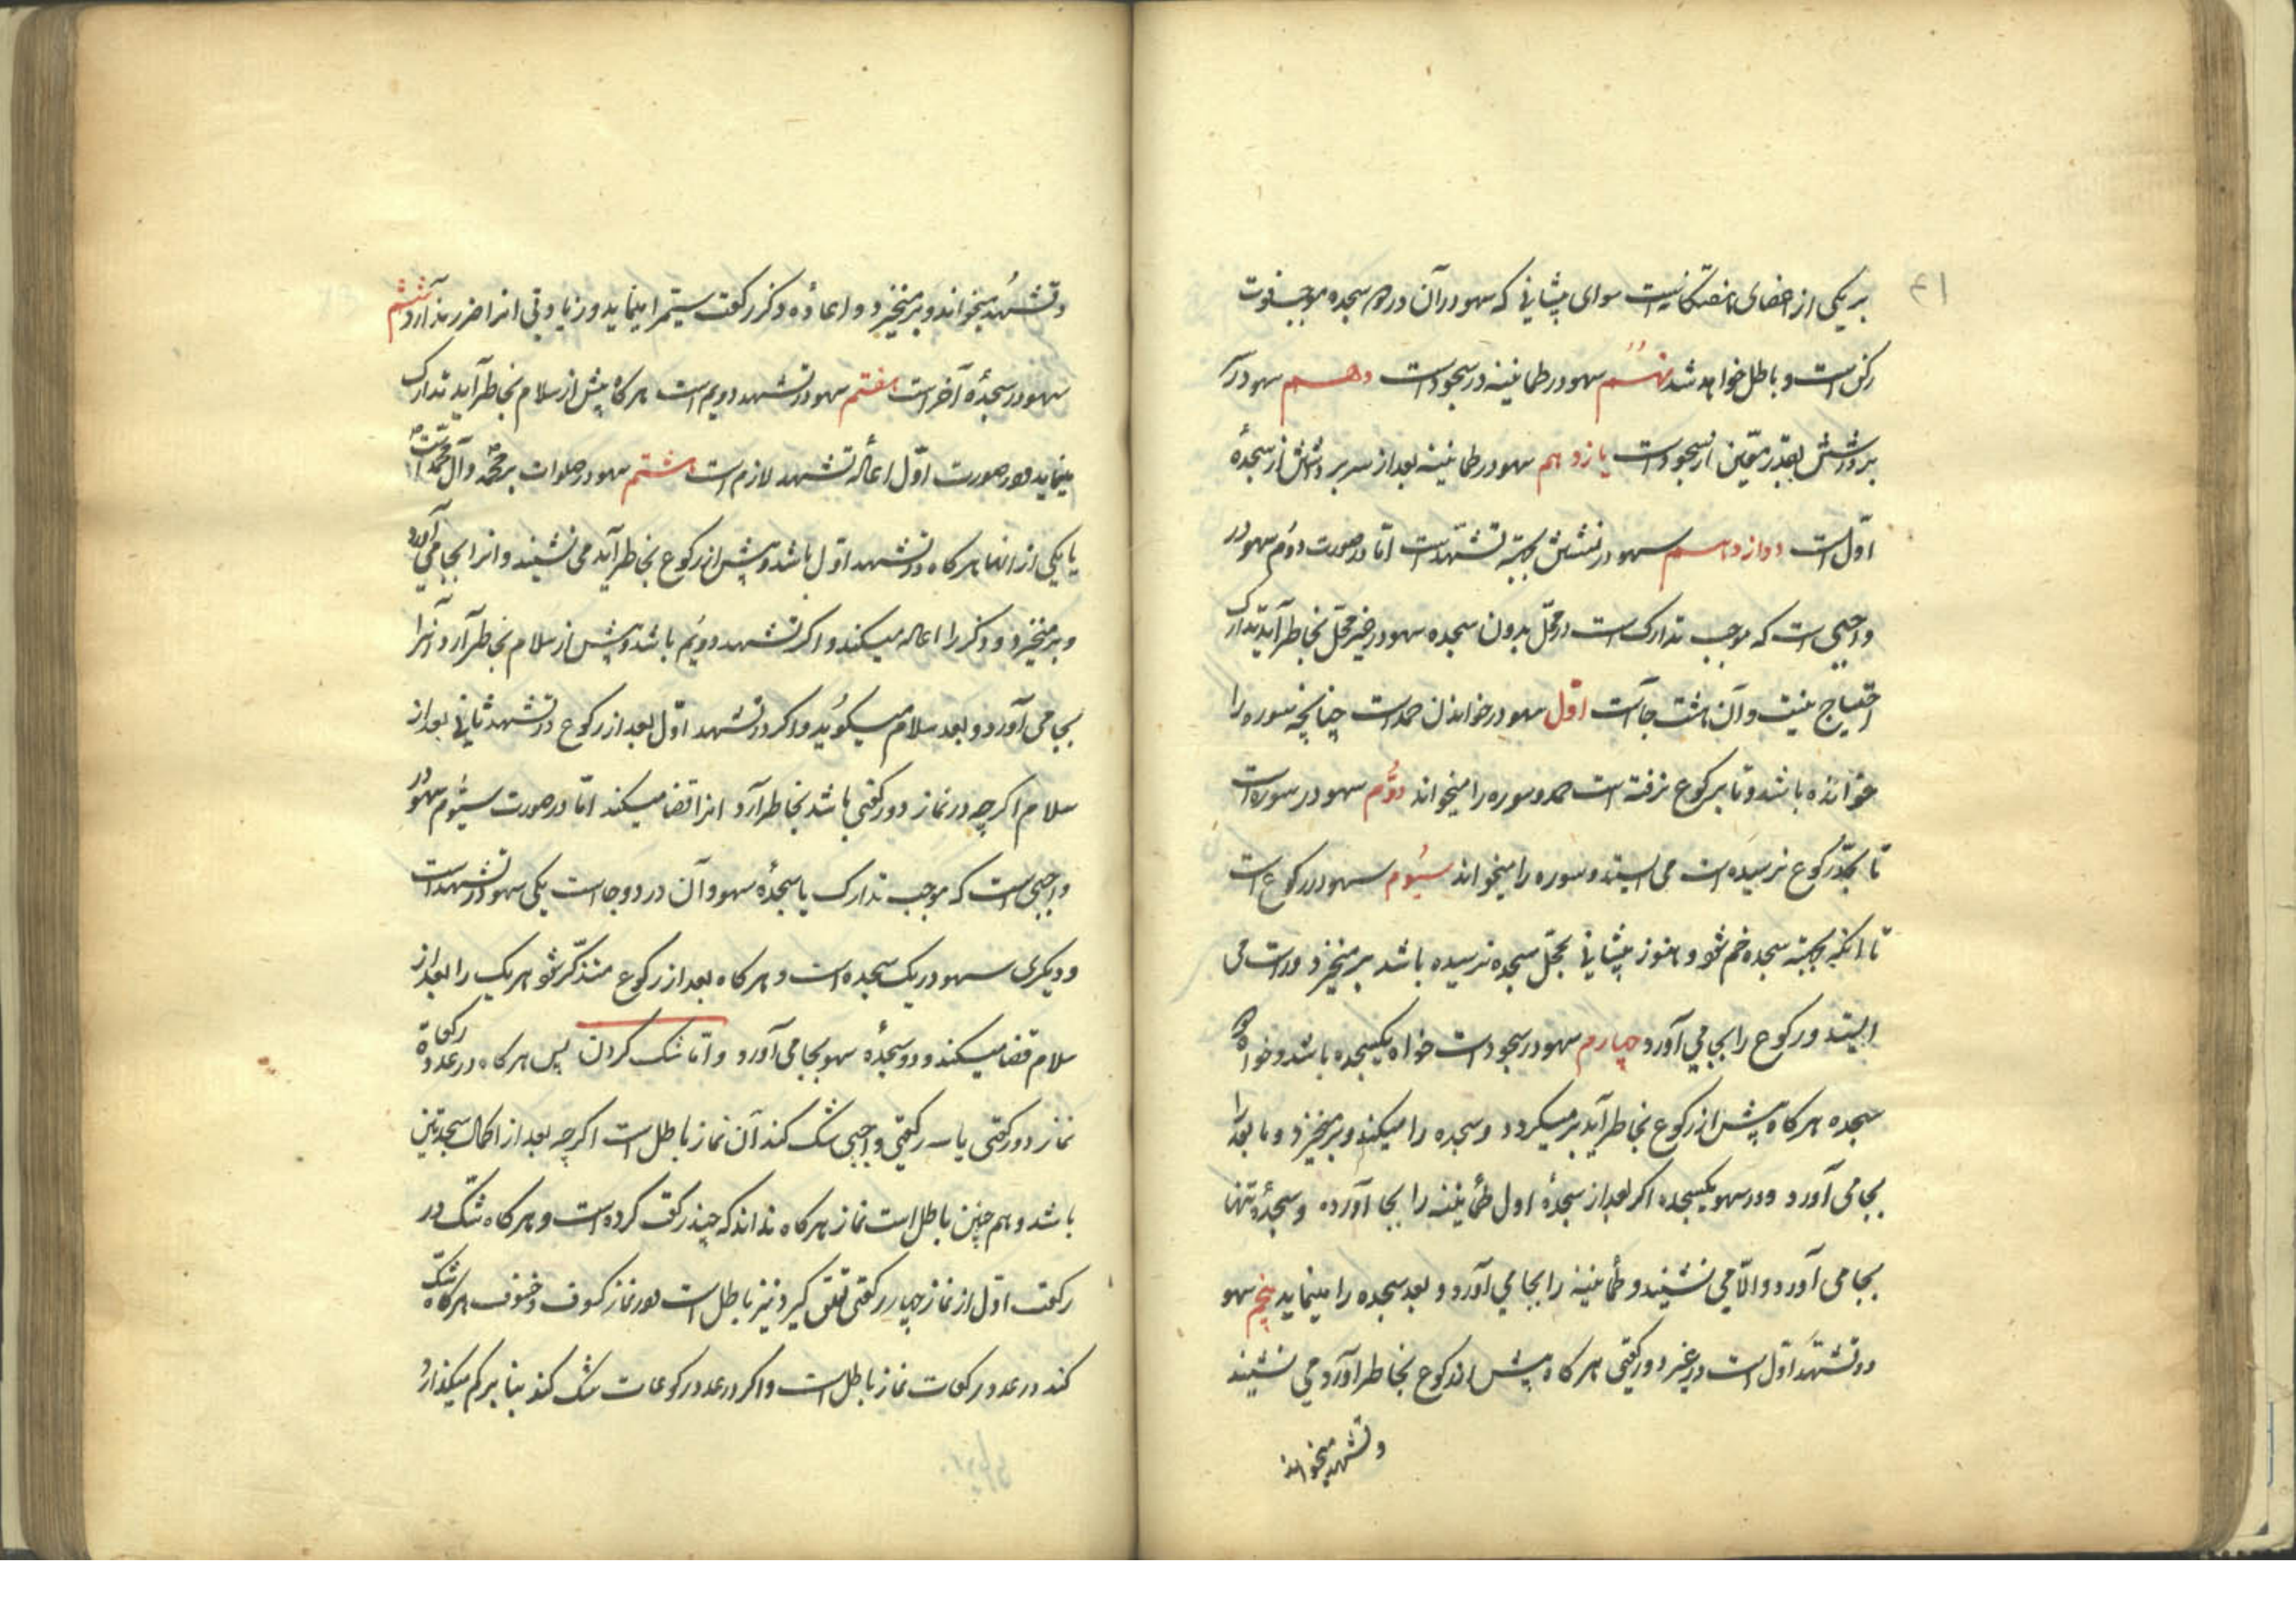 ۴۱
بر یکی از اعضای هفتگانیست سوای پیشانی که سهو در آن در هر دو سجده موجب فوت
رکن است و باطل خواهد شد نهم سهو در طمانینه در سجود است دهم سهو در سر
برداشتن بقدر متیقن از سجود است یازدهم سهو در طمانینه بعد از سر برداشتن از سجدهٔ
اوّل است دوازدهم سهو در نشستن بجهة تشهّد است امّا در صورت دوّم سهو در
واجبی است که موجب تدارک است در محلّ بدون سجده سهو در غیر محلّ بخاطر آید تدارک
احتیاج نیست و آن هشت جا است اوّل سهو در خواندن حمد است چنانچه سوره را
خوانده باشد و تا برکوع نرفته است حمد و سوره را میخواند دوّم سهو در سوره است
تا بحدّ رکوع نرسیده است می ایستد و سوره را میخواند سیّوم سهو در رکوع است
تا انکه بجهتة سجده خم شود و هنوز پیشانی بمحلّ سجده نرسیده باشد برمیخیزد و راست می
ایستد و رکوع را بجا می آورد چهارم سهو در سجود است خواه یکسجده باشد و خواه دو
سجده هرکاه پیش از رکوع بخاطر آید برمیکردد و سجده را میکند و برمیخیزد و ما بعد را
بجا می آورد و در سهو یکسجده اکر بعد از سجدهٔ اول طمأنینه را بجا آورده و سجدهٔ تنها
بجا می آورد و الّا می نشیند و طمأنینه را بجا می آورد و بعد سجده را مینماید پنجم سهو
در تشهّد اوّل است در غیر دو رکعتی هرکاه پیش از رکوع بخاطر آورد می نشیند
و تشهد میخواند
و تشهّد میخواند و برمیخیزد و اعادهٔ ذکر رکعت سیّم را مینماید و زیادتی انرا ضرر ندارد ششم
سهو در سجدهٔ آخر است هفتم سهو در تشهد دویم است هرکاه پیش از سلام بخاطر آید تدارک
مینماید و در صورت اوّل اعاده تشهد لازم است هشتم سهو در صلوات بر محمّد و آل محمّد است
یا یکی از انها هرکاه در تشهد اوّل باشد و پیش از رکوع بخاطر آید می نشیند و انرا بجا می آورد
و برمیخیزد و ذکر را اعاده میکند و اکر تشهد دویّم باشد و پیش از سلام بخاطر آرد آنرا
بجا می آورد و بعد سلام میکوید و اکر در تشهد اوّل بعد از رکوع در تشهد ثانی بعد از
سلام اکرچه در نماز دو رکعتی باشد بخاطر آرد انرا قضا میکند امّا در صورت سیّوم سهو در
واجبی است که موجب تدارک با سجدهٔ سهو و آن در دو جا است یکی سهو در تشهد است
و دیکری سهو در یک سجده است و هرکاه بعد از رکوع متذکّر شود هر یک را بعد از
سلام قضا میکند و دو سجدهٔ سهو بجا می آورد و امّا شک کردن پس هرکاه در عدد رکعات
نماز دو رکعتی یا سه رکعتی واجبی شک کند آن نماز باطل است اکرچه بعد از اکمال سجدتین
باشد و هم چنین باطل است نماز هرکاه نداند که چند رکعت کرده است و هرکاه شک در
رکعت اوّل از نماز چهار رکعتی تعلق کیرد نیز باطل است و در نماز کسوف و خسوف هرکاه شک
کند در عدد رکعات نماز باطل است و اکر در عدد رکوعات شک کند بنا بر کم میکذارد